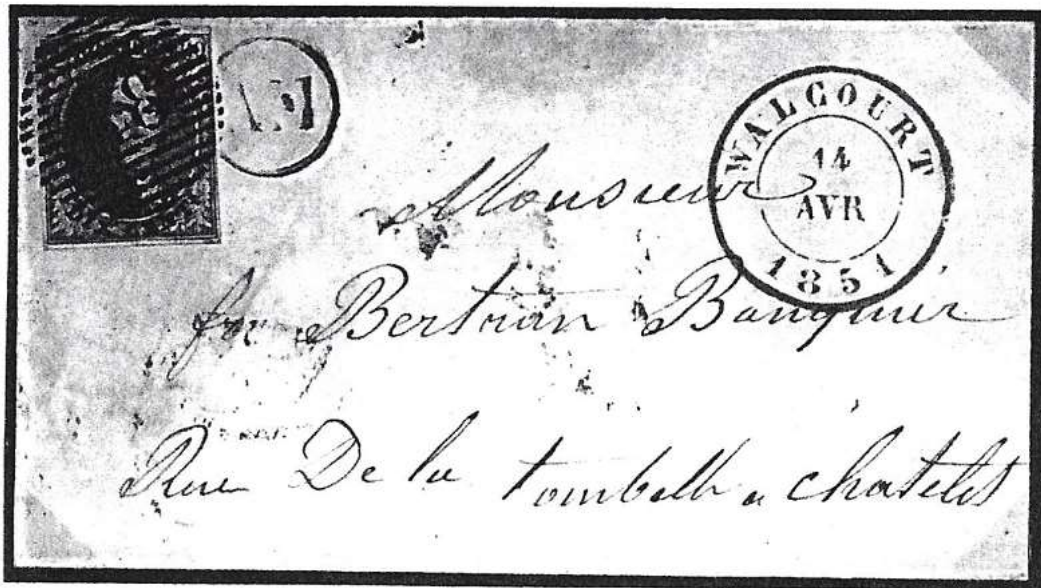 WALCOURT
14
AVR
1851
Monsieur
Bertrain Banquier
Rue De la tombelle a chatelet